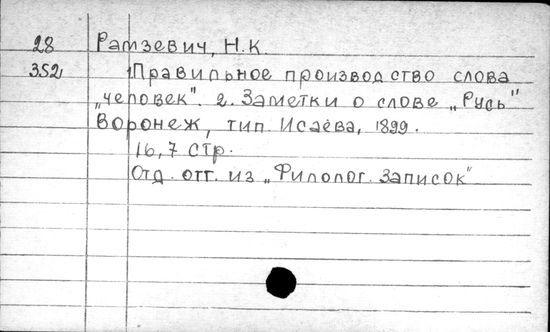 28 Рамзевич, Н.К.
352 Правильное производство слова
„человек". 2. Заметки о слове „Русь"
Воронеж, тип. Исаева, 1899.
16,7 стр.
Отд. отт. из „Филолог. Записок"